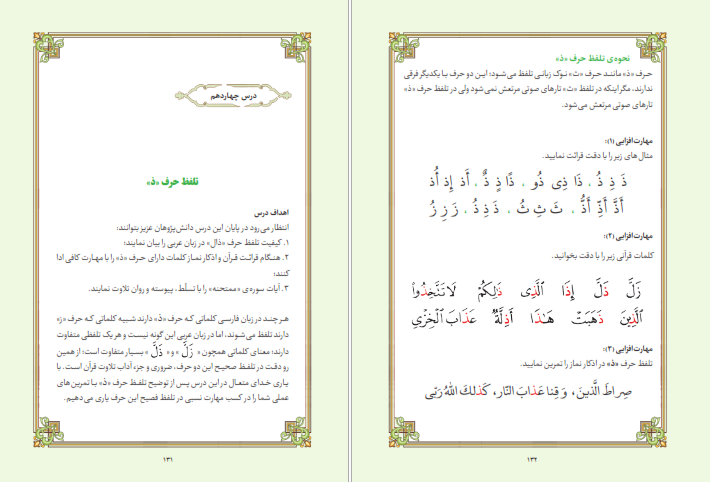 درس چهاردهم
تلفظ حرف «ذ»
اهداف درس
انتظار می‌رود در پایان این درس دانش‌پژوهان عزیز بتوانند:
۱. کیفیت تلفظ حرف «ذال» در زبان عربی را بیان نمایند؛
۲. هنگام قرائت قرآن و اذکار نماز کلمات دارای حرف «ذ» را با مهارت کافی ادا
کنند؛
۳. آیات سوره‌ی «ممتحنه» را با تسلّط، پیوسته و روان تلاوت نمایند.
هر چند در زبان فارسی کلماتی که حرف «ذ» دارند شبیه کلماتی که حرف «ز»
دارند تلفظ می‌شوند، اما در زبان عربی این گونه نیست و هر یک تلفظی متفاوت
دارند؛ معنای کلماتی همچون « زَلَّ » و « ذَلَّ » بسیار متفاوت است؛ از همین
رو دقت در تلفظ صحیح این دو حرف، ضروری و جزء آداب تلاوت قرآن است. با
یاری خدای متعال در این درس پس از توضیح تلفظ حرف «ذ» با تمرین‌های
عملی شما را در کسب مهارت نسبی در تلفظ فصیح این حرف یاری می‌دهیم.
۱۳۱
نحوه‌ی تلفظ حرف «ذ»
حرف «ذ» مانند حرف «ث» نوک زبانی تلفظ می‌شود؛ این دو حرف با یکدیگر فرقی
ندارند، مگر اینکه در تلفظ «ث» تارهای صوتی مرتعش نمی‌شود ولی در تلفظ حرف «ذ»
تارهای صوتی مرتعش می‌شود.
مهارت‌افزایی (۱):
مثال های زیر را با دقت قرائت نمایید.
ذَ ذِ ذُ ، ذَا ذِی ذُو ، ذًا ذٍ ذٌ ، أَذ إِذ أُذ
أَذَّ أَذِّ أَذُّ ، ثَ ثِ ثُ ، ذَ ذِ ذُ ، زَ زِ زُ
مهارت‌افزایی (۲):
کلمات قرآنی زیر را با دقت بخوانید.
زَلَّ ذَلَّ إِذَا ٱلَّذِی ذَٰلِكُمْ لَا تَتَّخِذُوا
ٱلَّذِینَ ذَهَبَتْ هَـٰذَا أَذِلَّةٌ عَذَابَ ٱلْخِزْیِ
مهارت‌افزایی (۳):
تلفظ حرف «ذ» در اذکار نماز را تمرین نمایید.
صِراطَ الَّذینَ، وَ قِنا عَذابَ النّار، كَذلِكَ اللهُ رَبّی
۱۳۲